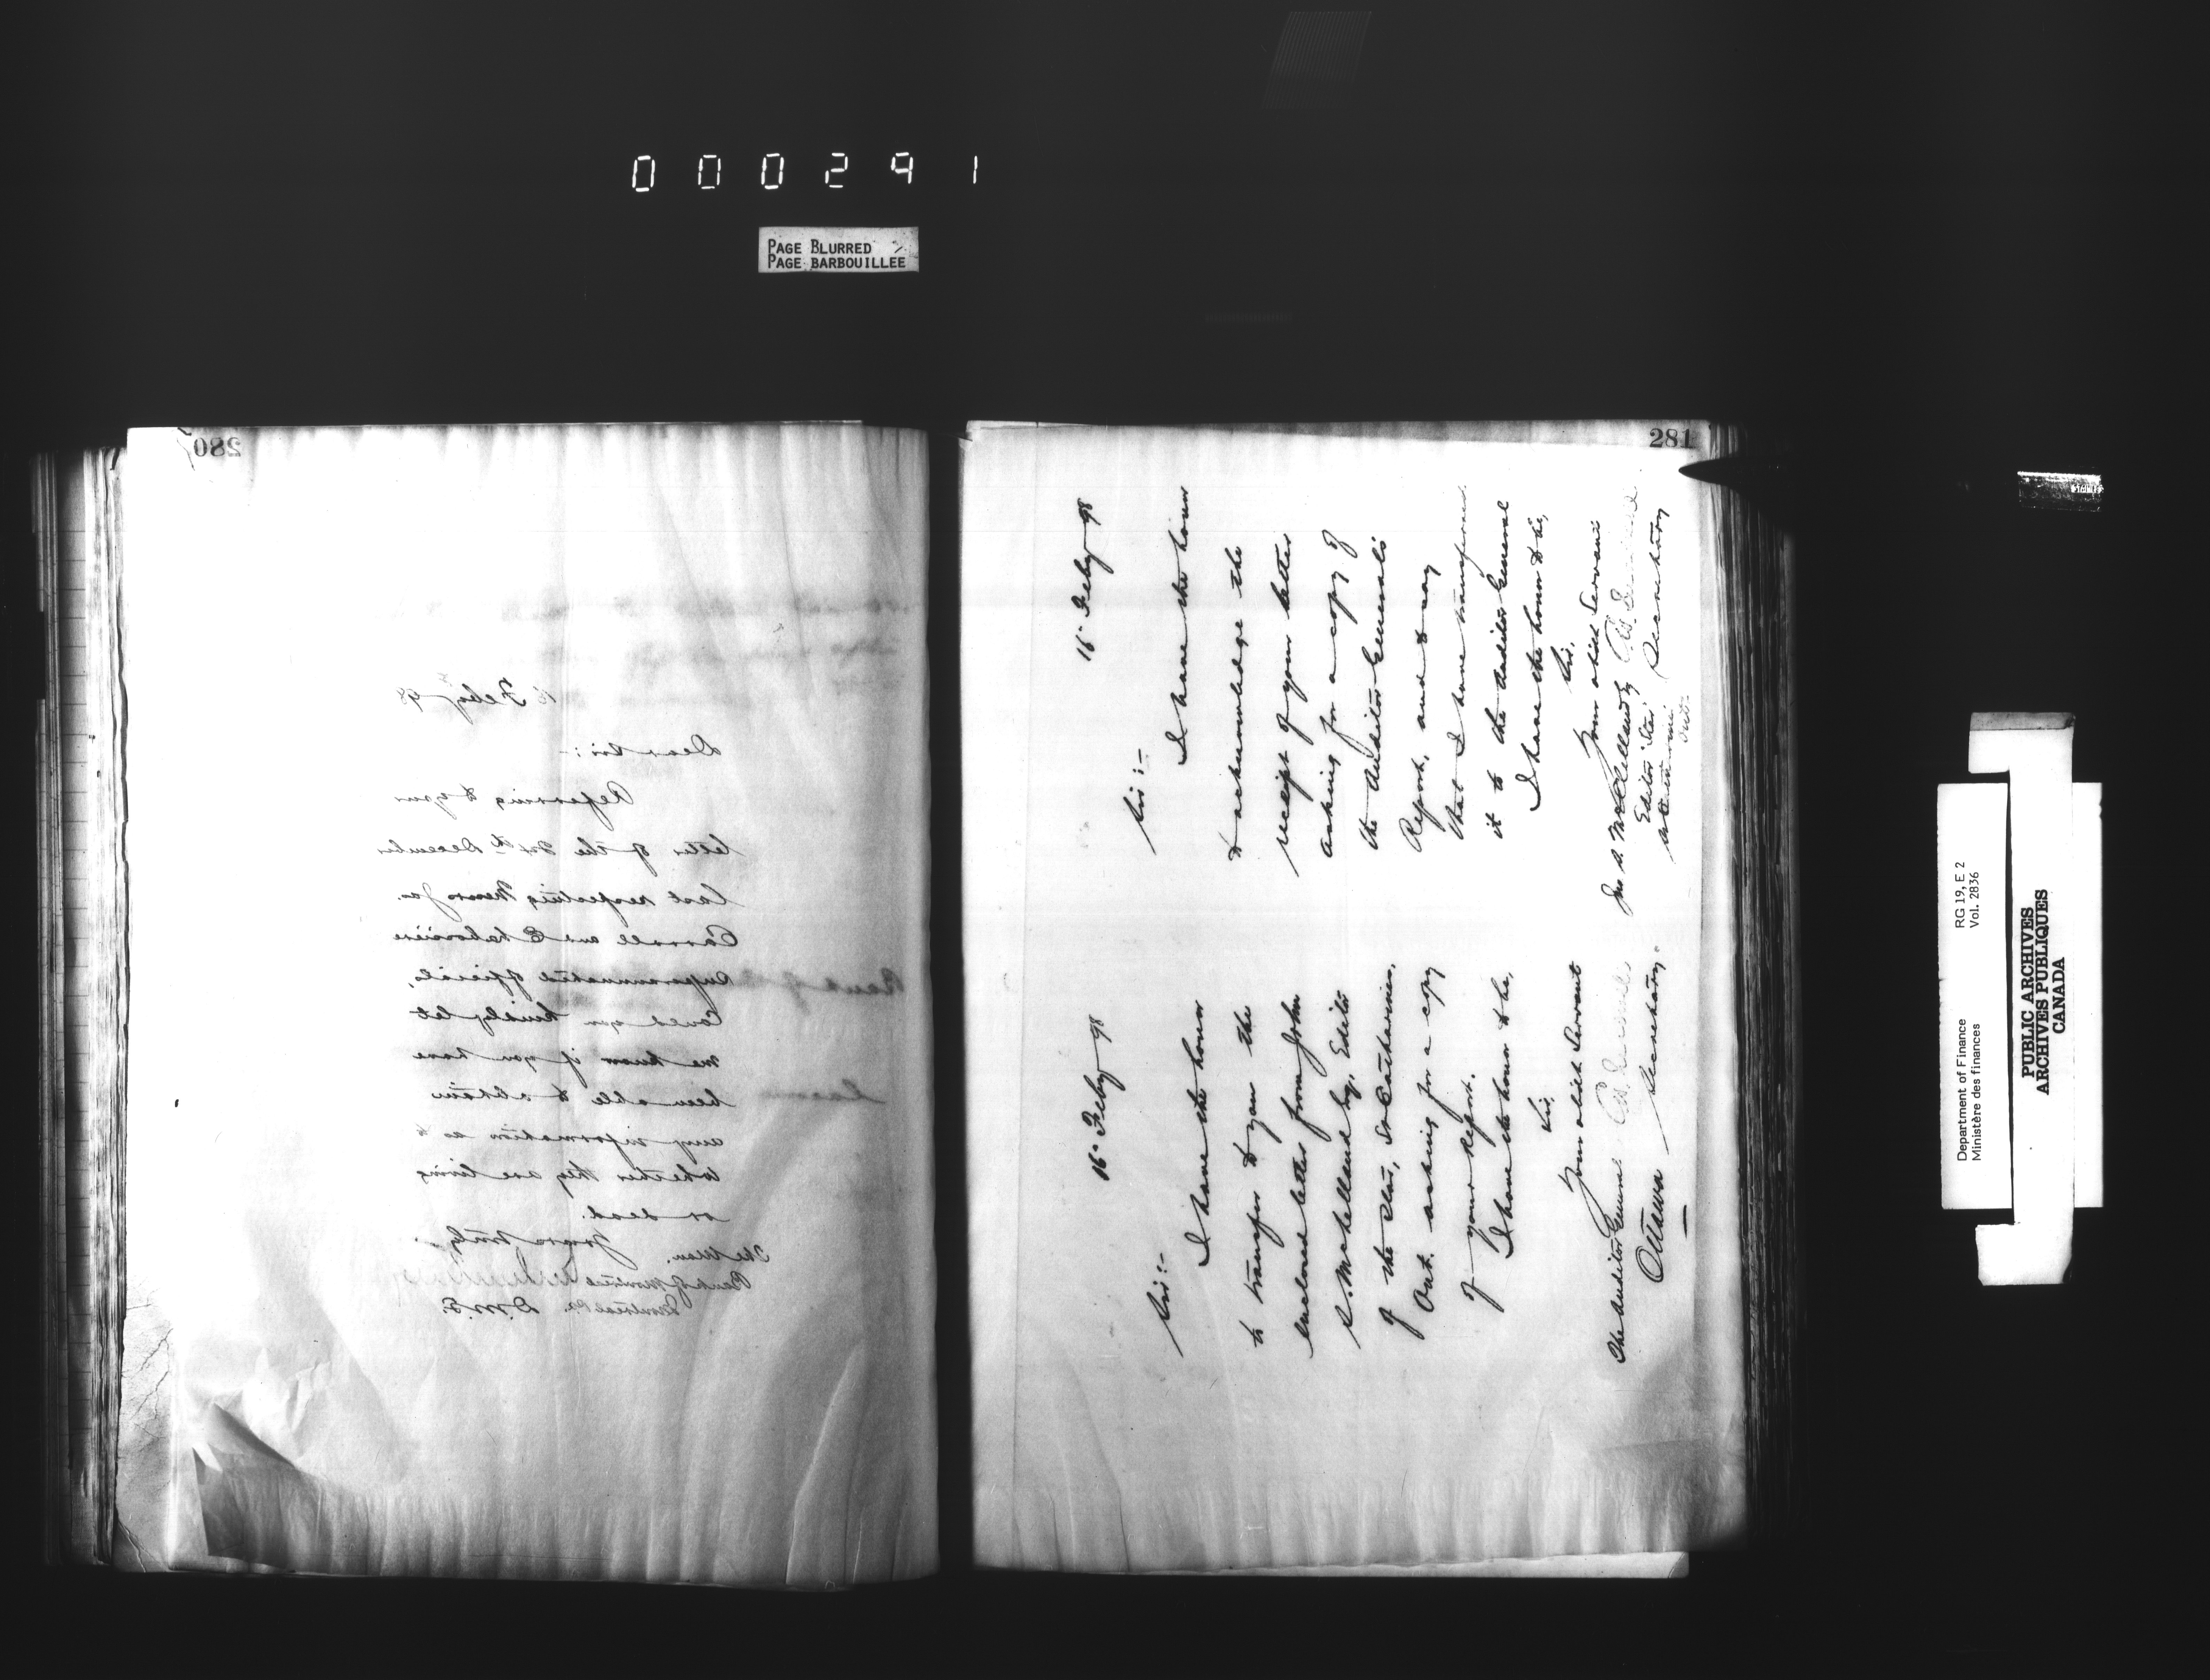 000291
PAGE BLURRED
PAGE BARBOUILLEE
280
16 Feby 98
Dear Sir:-
Referring to your
letter of the 24th December
last respecting Messrs Jas.
and
superannuated officials,
Could you kindly let
me know if you have
been able to obtain
any information as to
whether they are living
or dead.
Yours truly,
The Man.
Bank of Montreal
Montreal D.M.F.
281
16 Feby 98
Sir:-
I have the honour
to transfer to you the
enclosed letter from John
S. McClelland Esq, Editor
of the Star, St Catharines,
Ont. asking for a copy
of your Report.
I have the honor to be,
Sir,
Your obdt Servant
The Auditor General
Ottawa Secretary.
16 Feby 98
Sir:-
I have the honour
to acknowledge the
receipt of your letter
asking for a copy of
the Auditor General's
Report, and to say
that I have transferred
it to the Auditor General
I have the honor to be,
Sir,
Your obdt Servant
Jno S. McClelland Esq
Editor Star
St Catharines Secretary
Ont.
Department of Finance RG 19, E 2
Ministère des finances Vol. 2836
PUBLIC ARCHIVES
ARCHIVES PUBLIQUES
CANADA